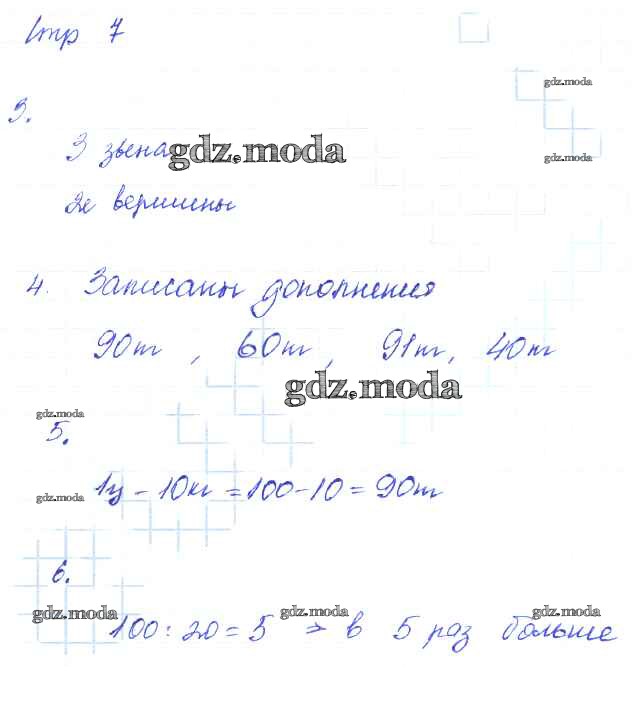 Стр 7
gdz.moda
3.
3 звена gdz.moda
gdz.moda
2е вершины
4. Записаны дополнения
90т, 60т, 91т, 40т
gdz.moda
gdz.moda
5.
gdz.moda 1ц - 10кг = 100 - 10 = 90т
6.
gdz.moda gdz.moda gdz.moda
100 : 20 = 5 ⇒ в 5 раз больше